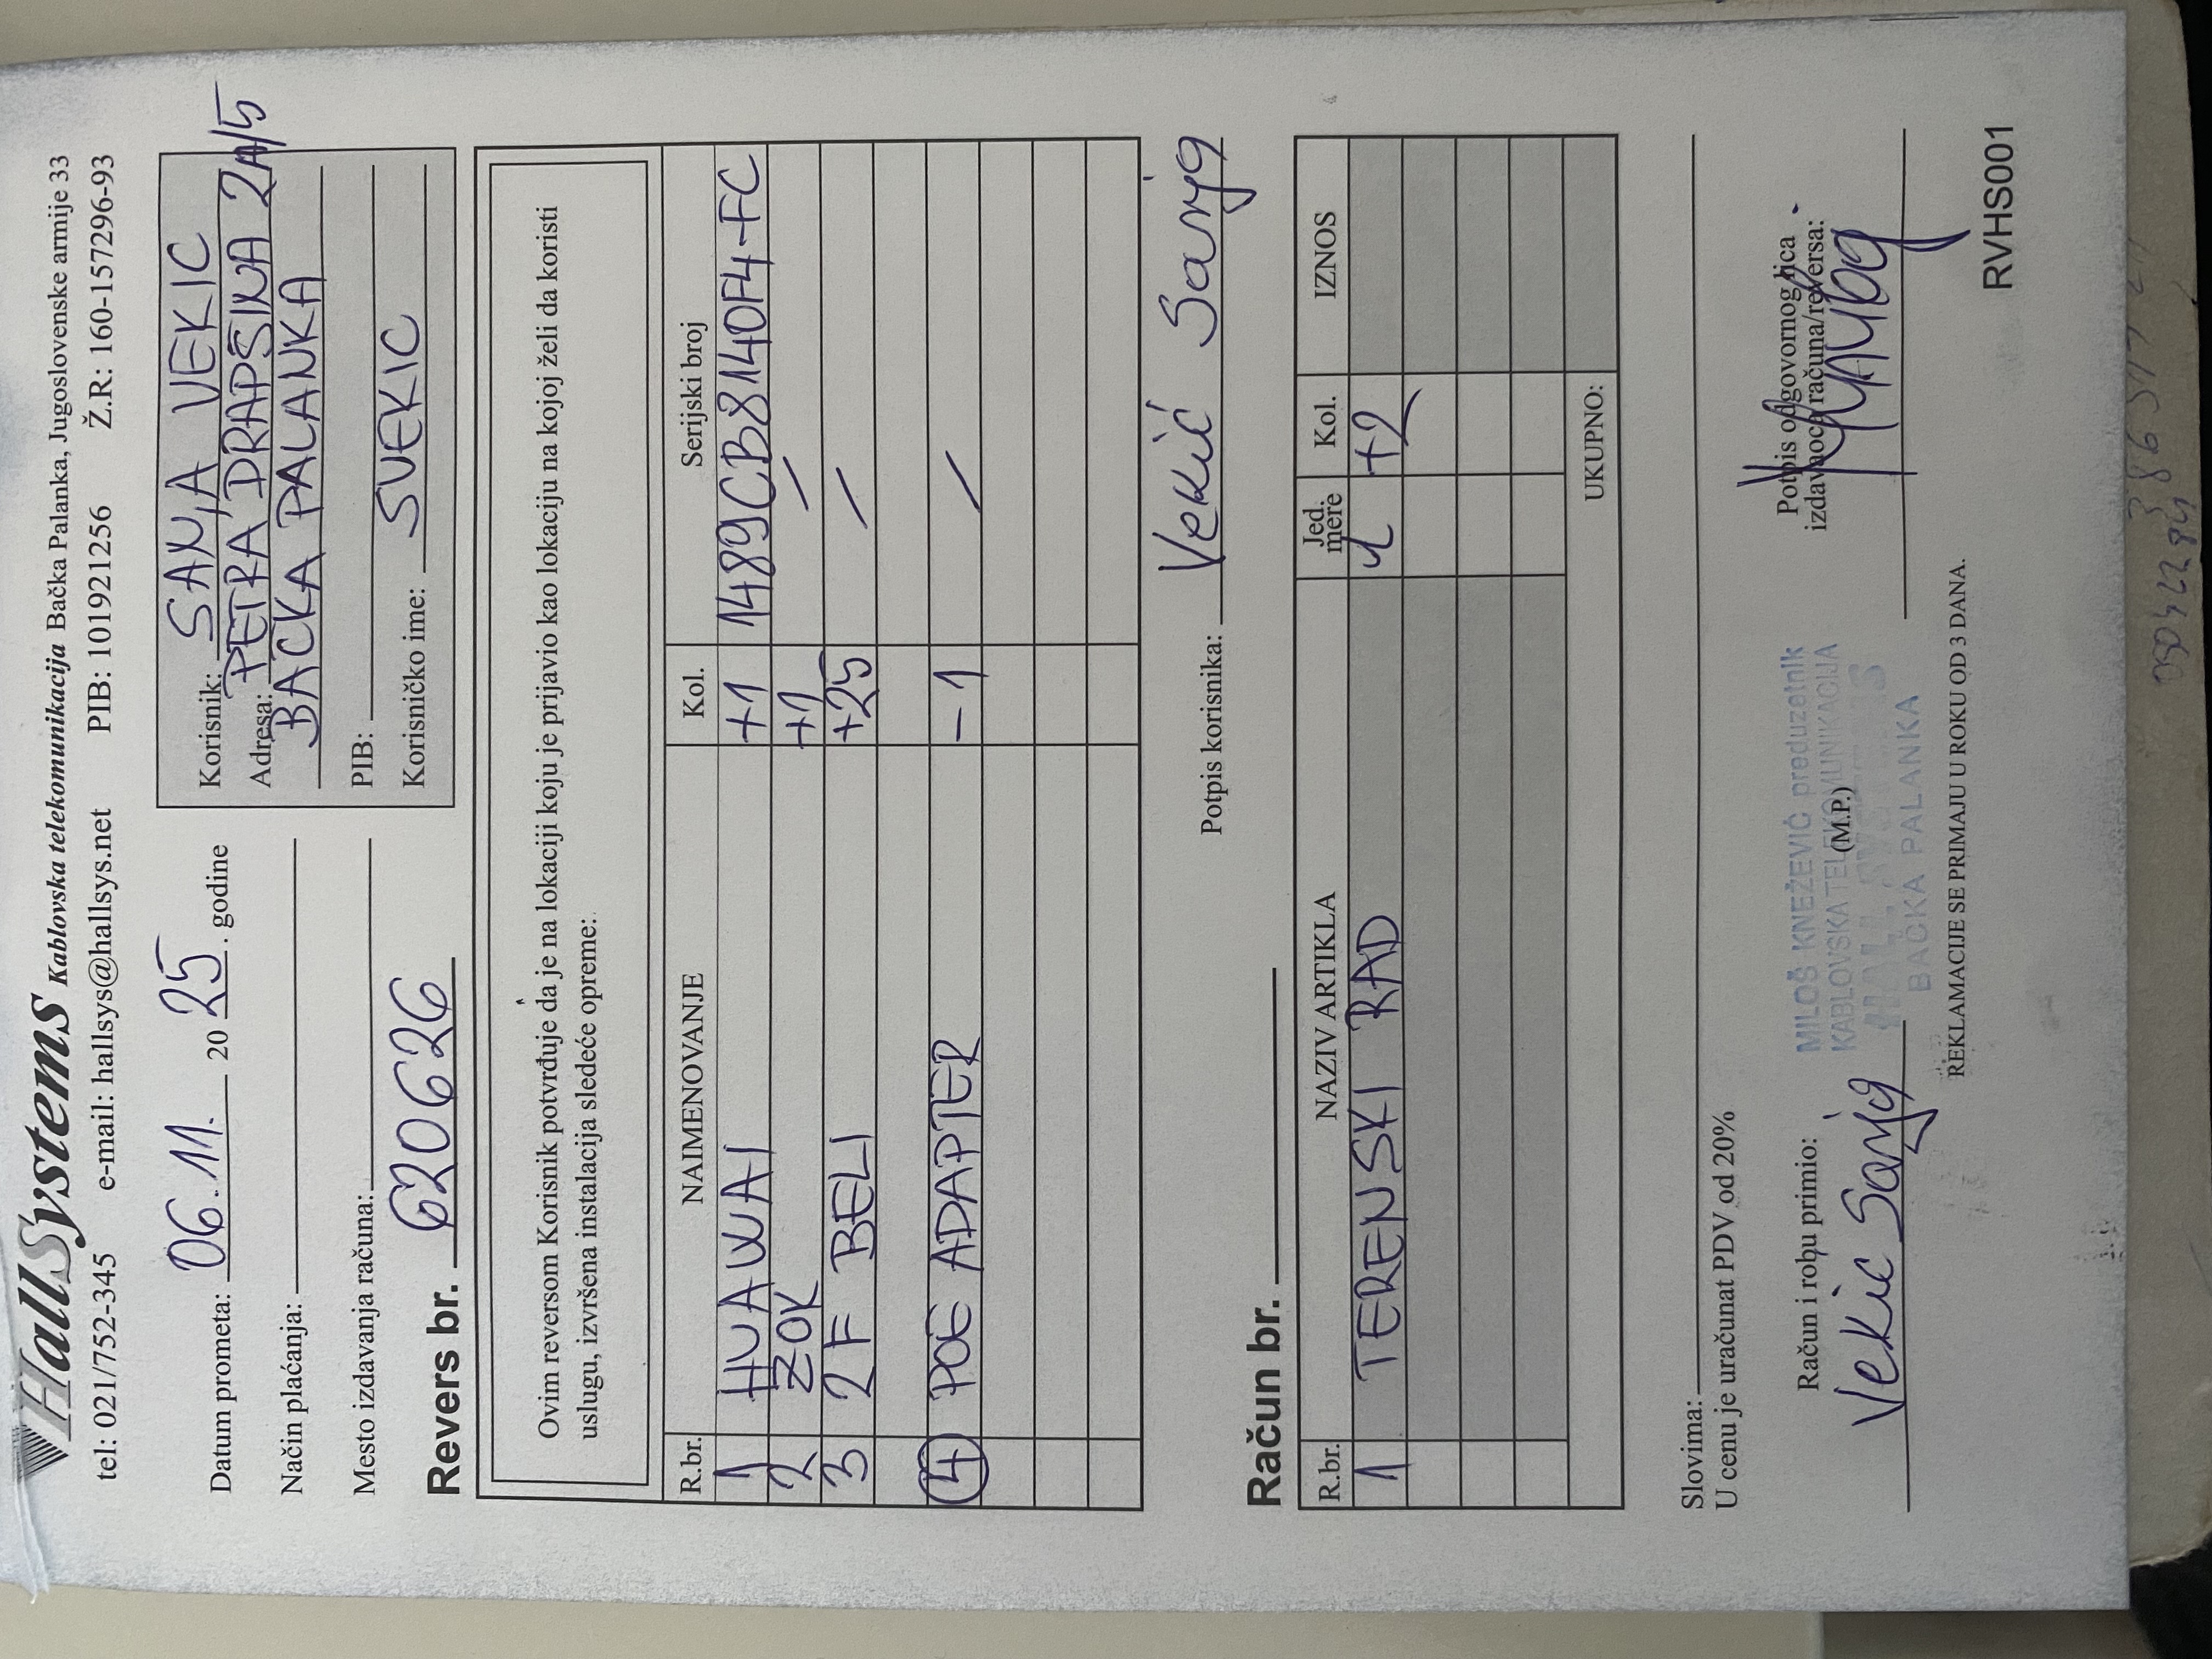 HallSystems Kablovska telekomunikacija Bačka Palanka, Jugoslovenske armije 33
tel: 021/752-345 e-mail: hallsys@hallsys.net PIB: 101921256 Ž.R: 160-157296-93
Datum prometa: 06.11. 20 25. godine
Način plaćanja:
Mesto izdavanja računa:
Korisnik: SANJA VEKIC
Adresa: PETRA DRAPŠINA 2A/5
BACKA PALANKA
PIB:
Korisničko ime: SVEKIC
Revers br. 620626
Ovim reversom Korisnik potvrđuje da je na lokaciji koju je prijavio kao lokaciju na kojoj želi da koristi
uslugu, izvršena instalacija sledeće opreme:
R.br. NAIMENOVANJE Kol. Serijski broj
1 HUAWAI +1 1489CB8140F4-FC
2 ZOK +1 /
3 2F BELI +25 /
4 POE ADAPTER -1 /
Potpis korisnika: Vekić Sanja
Račun br.
R.br. NAZIV ARTIKLA Jed. mere Kol. IZNOS
1 TERENSKI RAD +2
UKUPNO:
Slovima:
U cenu je uračunat PDV od 20%
Račun i robu primio:
Vekic Sanja
(M.P.)
MILOŠ KNEŽEVIĆ preduzetnik
KABLOVSKA TELEKOMUNIKACIJA
BAČKA PALANKA
Potpis odgovornog lica
izdavaoca računa/reversa:
REKLAMACIJE SE PRIMAJU U ROKU OD 3 DANA.
RVHS001